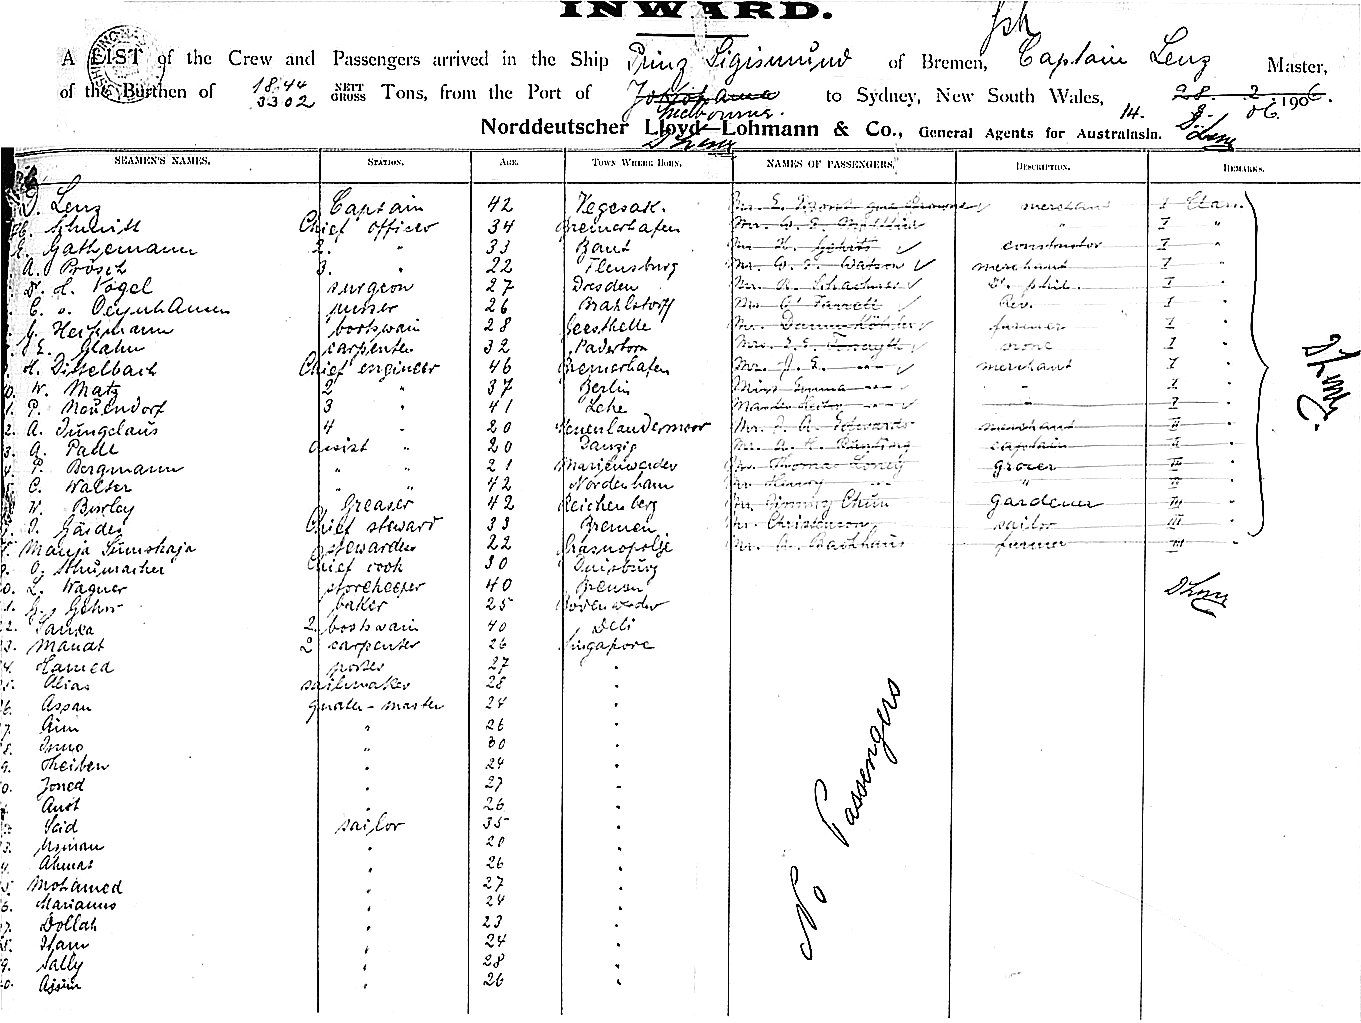 INWARD.
A LIST of the Crew and Passengers arrived in the Ship Prinz Sigismund of Bremen, Captain Lenz Master,
of the Burthen of 1844 3302 NETT GROSS Tons, from the Port of Yokohama Melbourne. to Sydney, New South Wales, 28. 2. 1906.
14. 3. 06.
Norddeutscher Lloyd—Lohmann & Co., General Agents for Australasia. D Lenz
D Lenz
SEAMEN'S NAMES. STATION. AGE. TOWN WHERE BORN. NAMES OF PASSENGERS. DESCRIPTION. REMARKS.
D. Lenz Captain 42 Vegesack. Mr. E. merchant I Class.
Schmidt Chief officer 34 Bremerhafen Mr. W. E. " I "
Gathemann 2. " 33 Bant Mr. H. constructor I "
A. Prösch 3. " 22 Flensburg Mr. W. F. Watson merchant I "
Dr. H. Vogel surgeon 27 Dresden Mr. R. Dr. phil. I "
C. v. Oeynhausen purser 26 Brahlstorf Mr. C. Farrell Rev. I "
Heitmann bootswain 28 Geesthelle Mr. farmer I "
E. Glahn carpenter 32 Paderborn Mrs. J. E. Forsyth none I "
H. Disselbach Chief engineer 46 Bremerhafen Mr. J. E. " merchant I "
W. Matz 2 " 37 Berlin Miss Emma " " I "
P. Neuendorf 3 " 41 Lehe Master " " I "
A. Jungclaus 4 " 20 Neuenlandermoor Mr. J. A. Edwards merchant II "
A. Pade assist " 20 Danzig Mr. A. H. Bunting captain II "
P. Bergmann " " 21 Marienwerder Mr. Thomas Loney grocer II "
C. Walter " " 42 Nordenham Mr. Henry " " II "
W. Borley Greaser 42 Reichenberg Mr. Jimmy Chun gardener III "
Gärdes Chief steward 33 Bremen Mr. Christenson sailor III "
Marija Sumskaja stewardess 22 Krasnopolje Mr. A. Backhaus farmer III "
O. Schumacher Chief cook 30 Duisburg
L. Wagner storekeeper 40 Bremen D Lenz
G. Gehrr baker 25 Bodenwerder
Sanka 2. bootswain 40 Deli
Manat 2 carpenter 26 Singapore
Hamed porter 27 "
Alias sailmaker 28 "
Assan quater-master 24 "
Aim " 26 "
" 30 "
Theiben " 24 "
Joned " 27 "
" 26 "
Seid sailor 35 "
Usman " 20 "
Ahmat " 26 "
Mohamed " 27 "
Marianus " 24 "
Dollah " 23 "
Itam " 24 "
Sally " 28 "
Assim " 26 "
No Passengers
D Lenz.